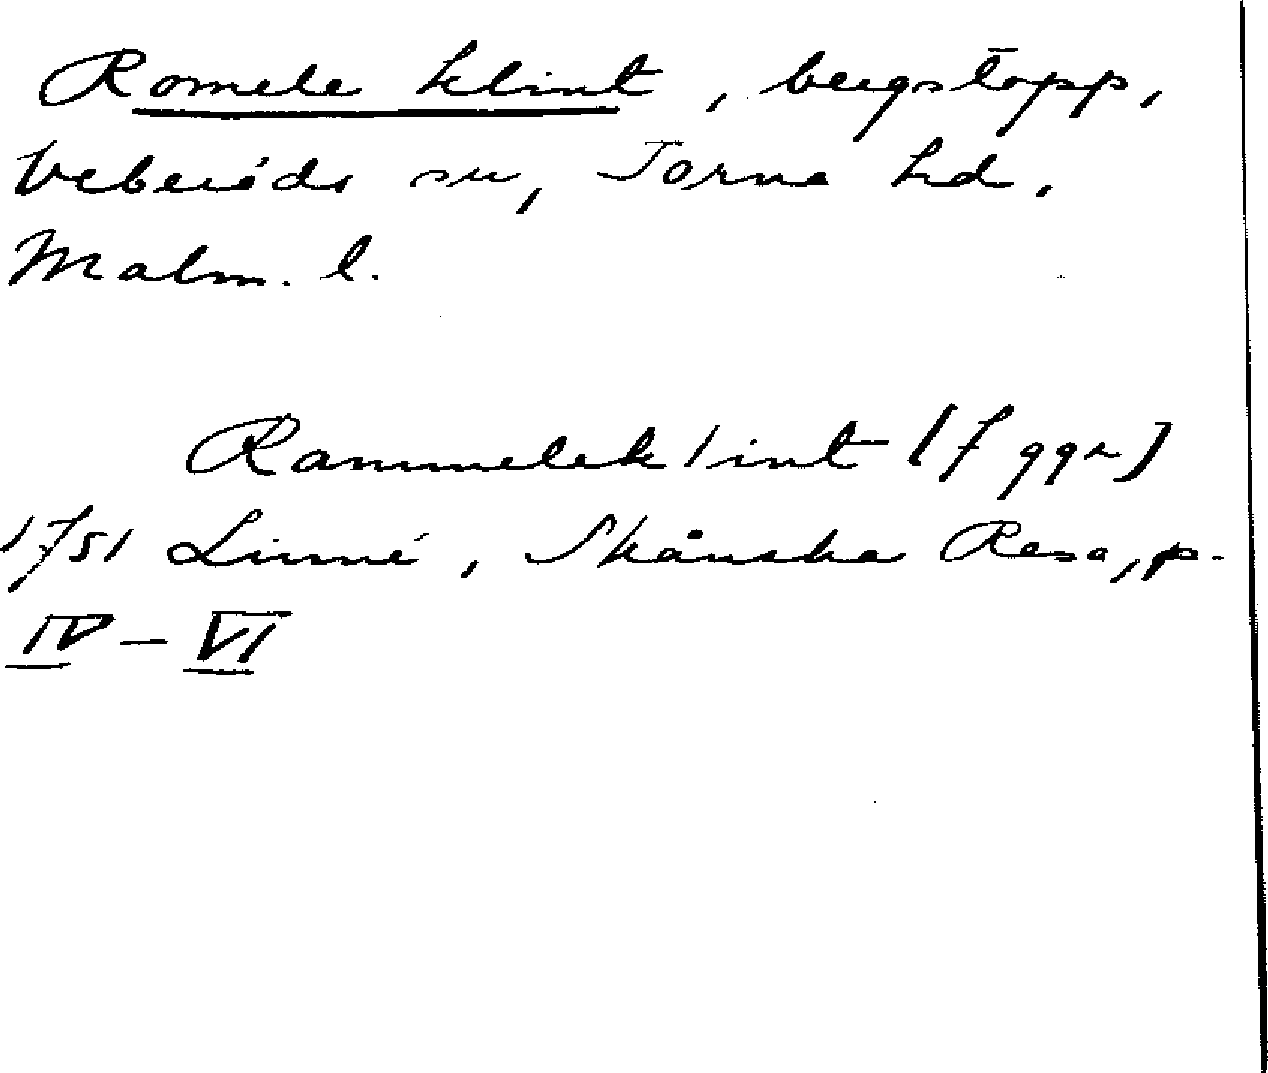 Romele klint, bergstopp,
Veberöds sn, Torna hd.
Malm. l.
Rammeleklint [7 ggr]
1751 Linné, Skånska Resa, p.
IV – VI